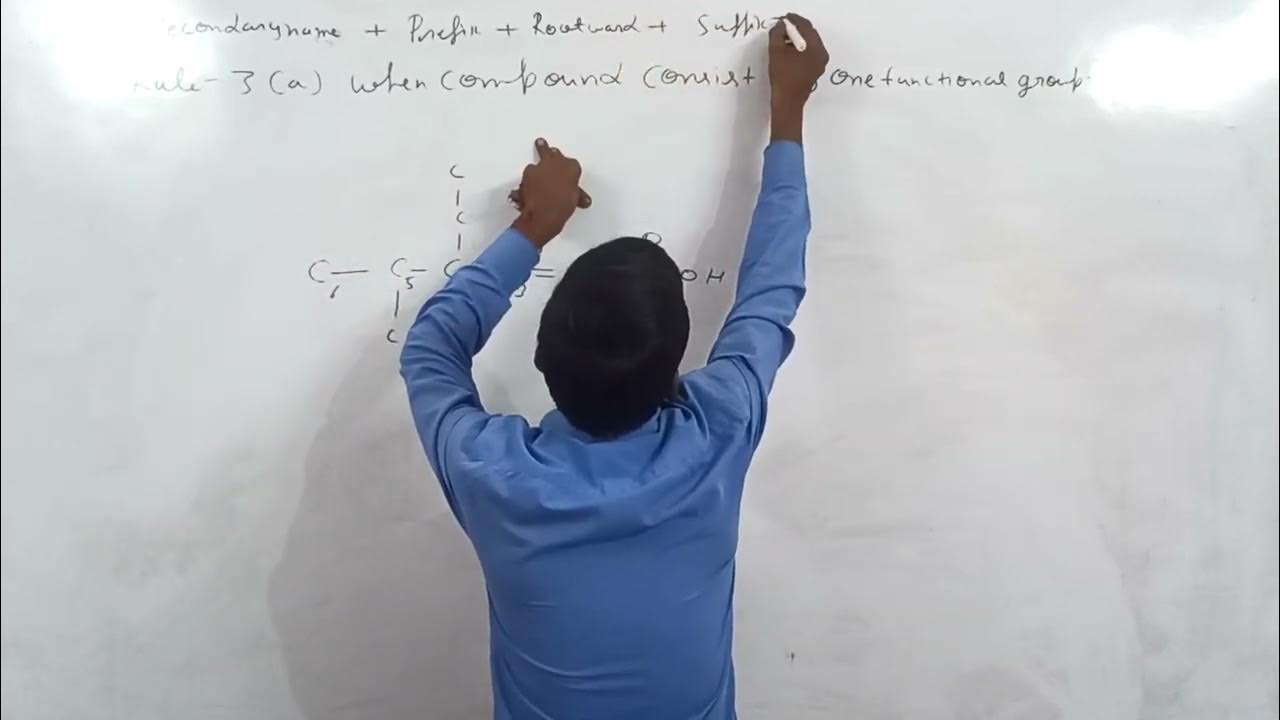 econdary name + Prefix + Rootward + Suffix
Rule - 3 (a) when compound consist one functional group
C
|
C
|
C — C - C =
6 5 3 OH
|
C